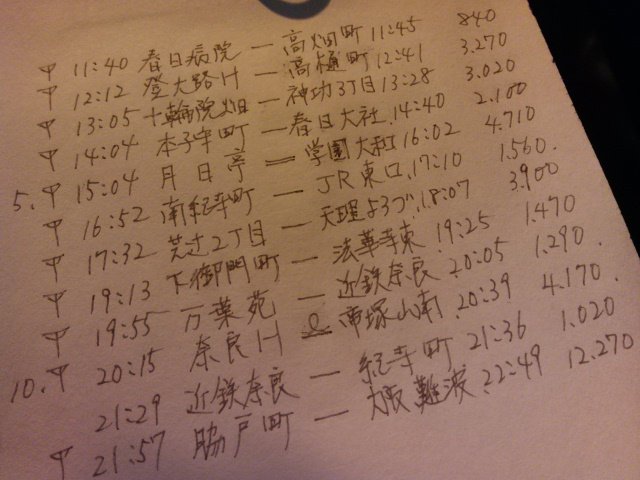 11:40 春日病院 — 高畑町 11:45 840
12:12 登大路H — 高樋町 12:41 3.270
13:05 十輪院畑 — 神功3丁目 13:28 3.020
14:04 本子守町 — 春日大社 14:40 2.100
5. 15:04 月日亭 — 学園大和 16:02 4.710
16:52 南紀寺町 — JR東口 17:10 1.560.
17:32 芝辻2丁目 — 天理よろづ 18:07 3.900
19:13 下御門町 — 法華寺東 19:25 1.470
19:55 万葉苑 — 近鉄奈良 20:05 1.290.
10. 20:15 奈良H — 帝塚山南 20:39 4.170.
21:29 近鉄奈良 — 紀寺町 21:36 1.020
21:57 脇戸町 — 大阪難波 22:49 12.270